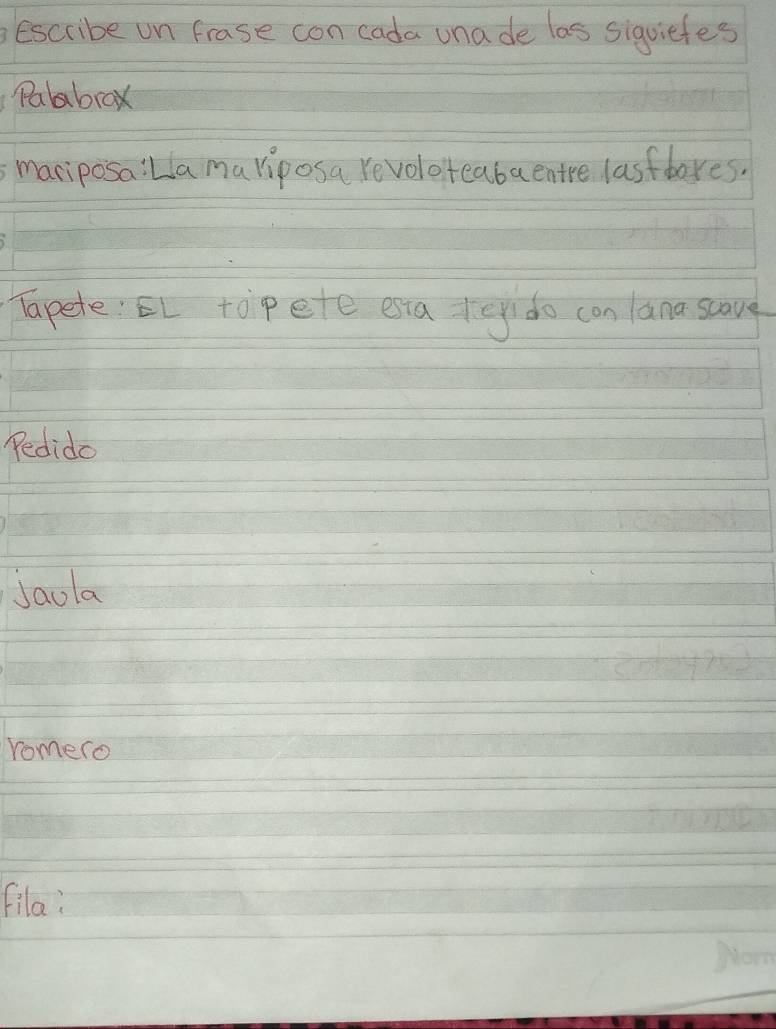 Escribe un frase con cada una de las siguietes
Palabrax
mariposa: La mariposa revoloteaba entre las flores.
Tapete: EL tapete esta tejido con lana suave
Pedido
Jaula
romero
fila:
Norm